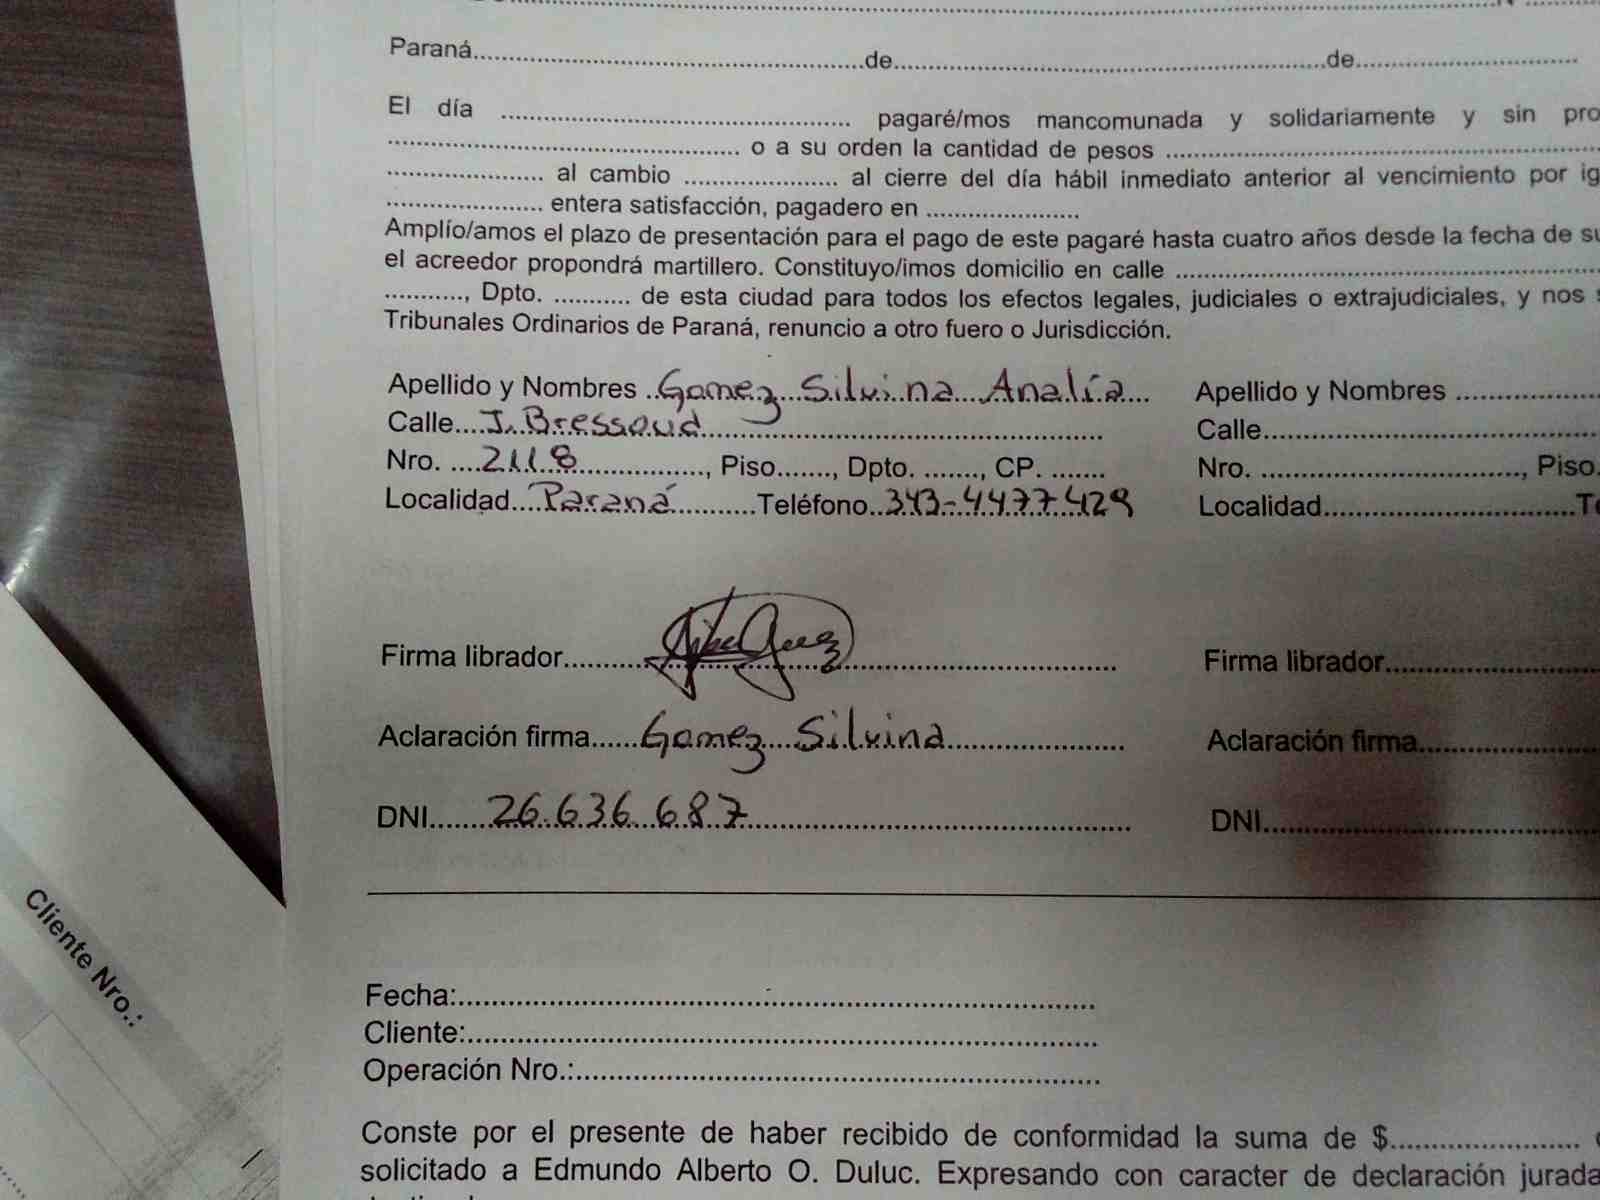 Paraná..........de..........de..........
El día .......... pagaré/mos mancomunada y solidariamente y sin pro
.......... o a su orden la cantidad de pesos ..........
.......... al cambio .......... al cierre del día hábil inmediato anterior al vencimiento por ig
.......... entera satisfacción, pagadero en ..........
Amplío/amos el plazo de presentación para el pago de este pagaré hasta cuatro años desde la fecha de su
el acreedor propondrá martillero. Constituyo/imos domicilio en calle ..........
.........., Dpto. .......... de esta ciudad para todos los efectos legales, judiciales o extrajudiciales, y nos s
Tribunales Ordinarios de Paraná, renuncio a otro fuero o Jurisdicción.
Apellido y Nombres ..Gomez Silvina Analía.... Apellido y Nombres ..........
Calle....J. Bressoud.......... Calle..........
Nro. ....2118.........., Piso......., Dpto. ......., CP. ....... Nro. .........., Piso.
Localidad....Paraná..........Teléfono..343-4477429 Localidad..........Te
Firma librador.......... Firma librador..........
Aclaración firma......Gomez Silvina.......... Aclaración firma..........
DNI.......26.636.687.......... DNI..........
Cliente Nro.:
Fecha:..........
Cliente:..........
Operación Nro.:..........
Conste por el presente de haber recibido de conformidad la suma de $..........
solicitado a Edmundo Alberto O. Duluc. Expresando con caracter de declaración jurada